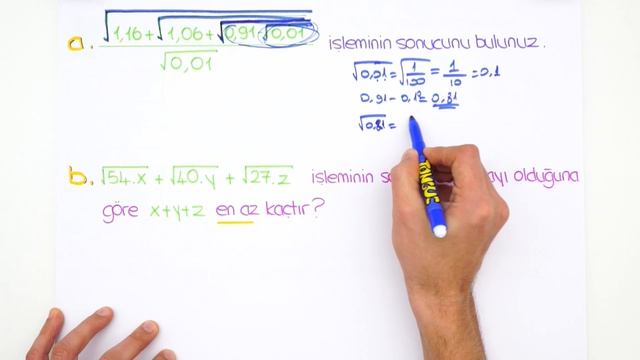 a. √1,16+√1,06+√0,91-√0,01 işleminin sonucunu bulunuz.
√0,01
√0,01 = √1/100 = 1/10 = 0,1
0,91 - 0,10 = 0,81
√0,81 =
b. √54.x + √40.y + √27.z işleminin ayı olduğuna
göre x+y+z en az kaçtır?